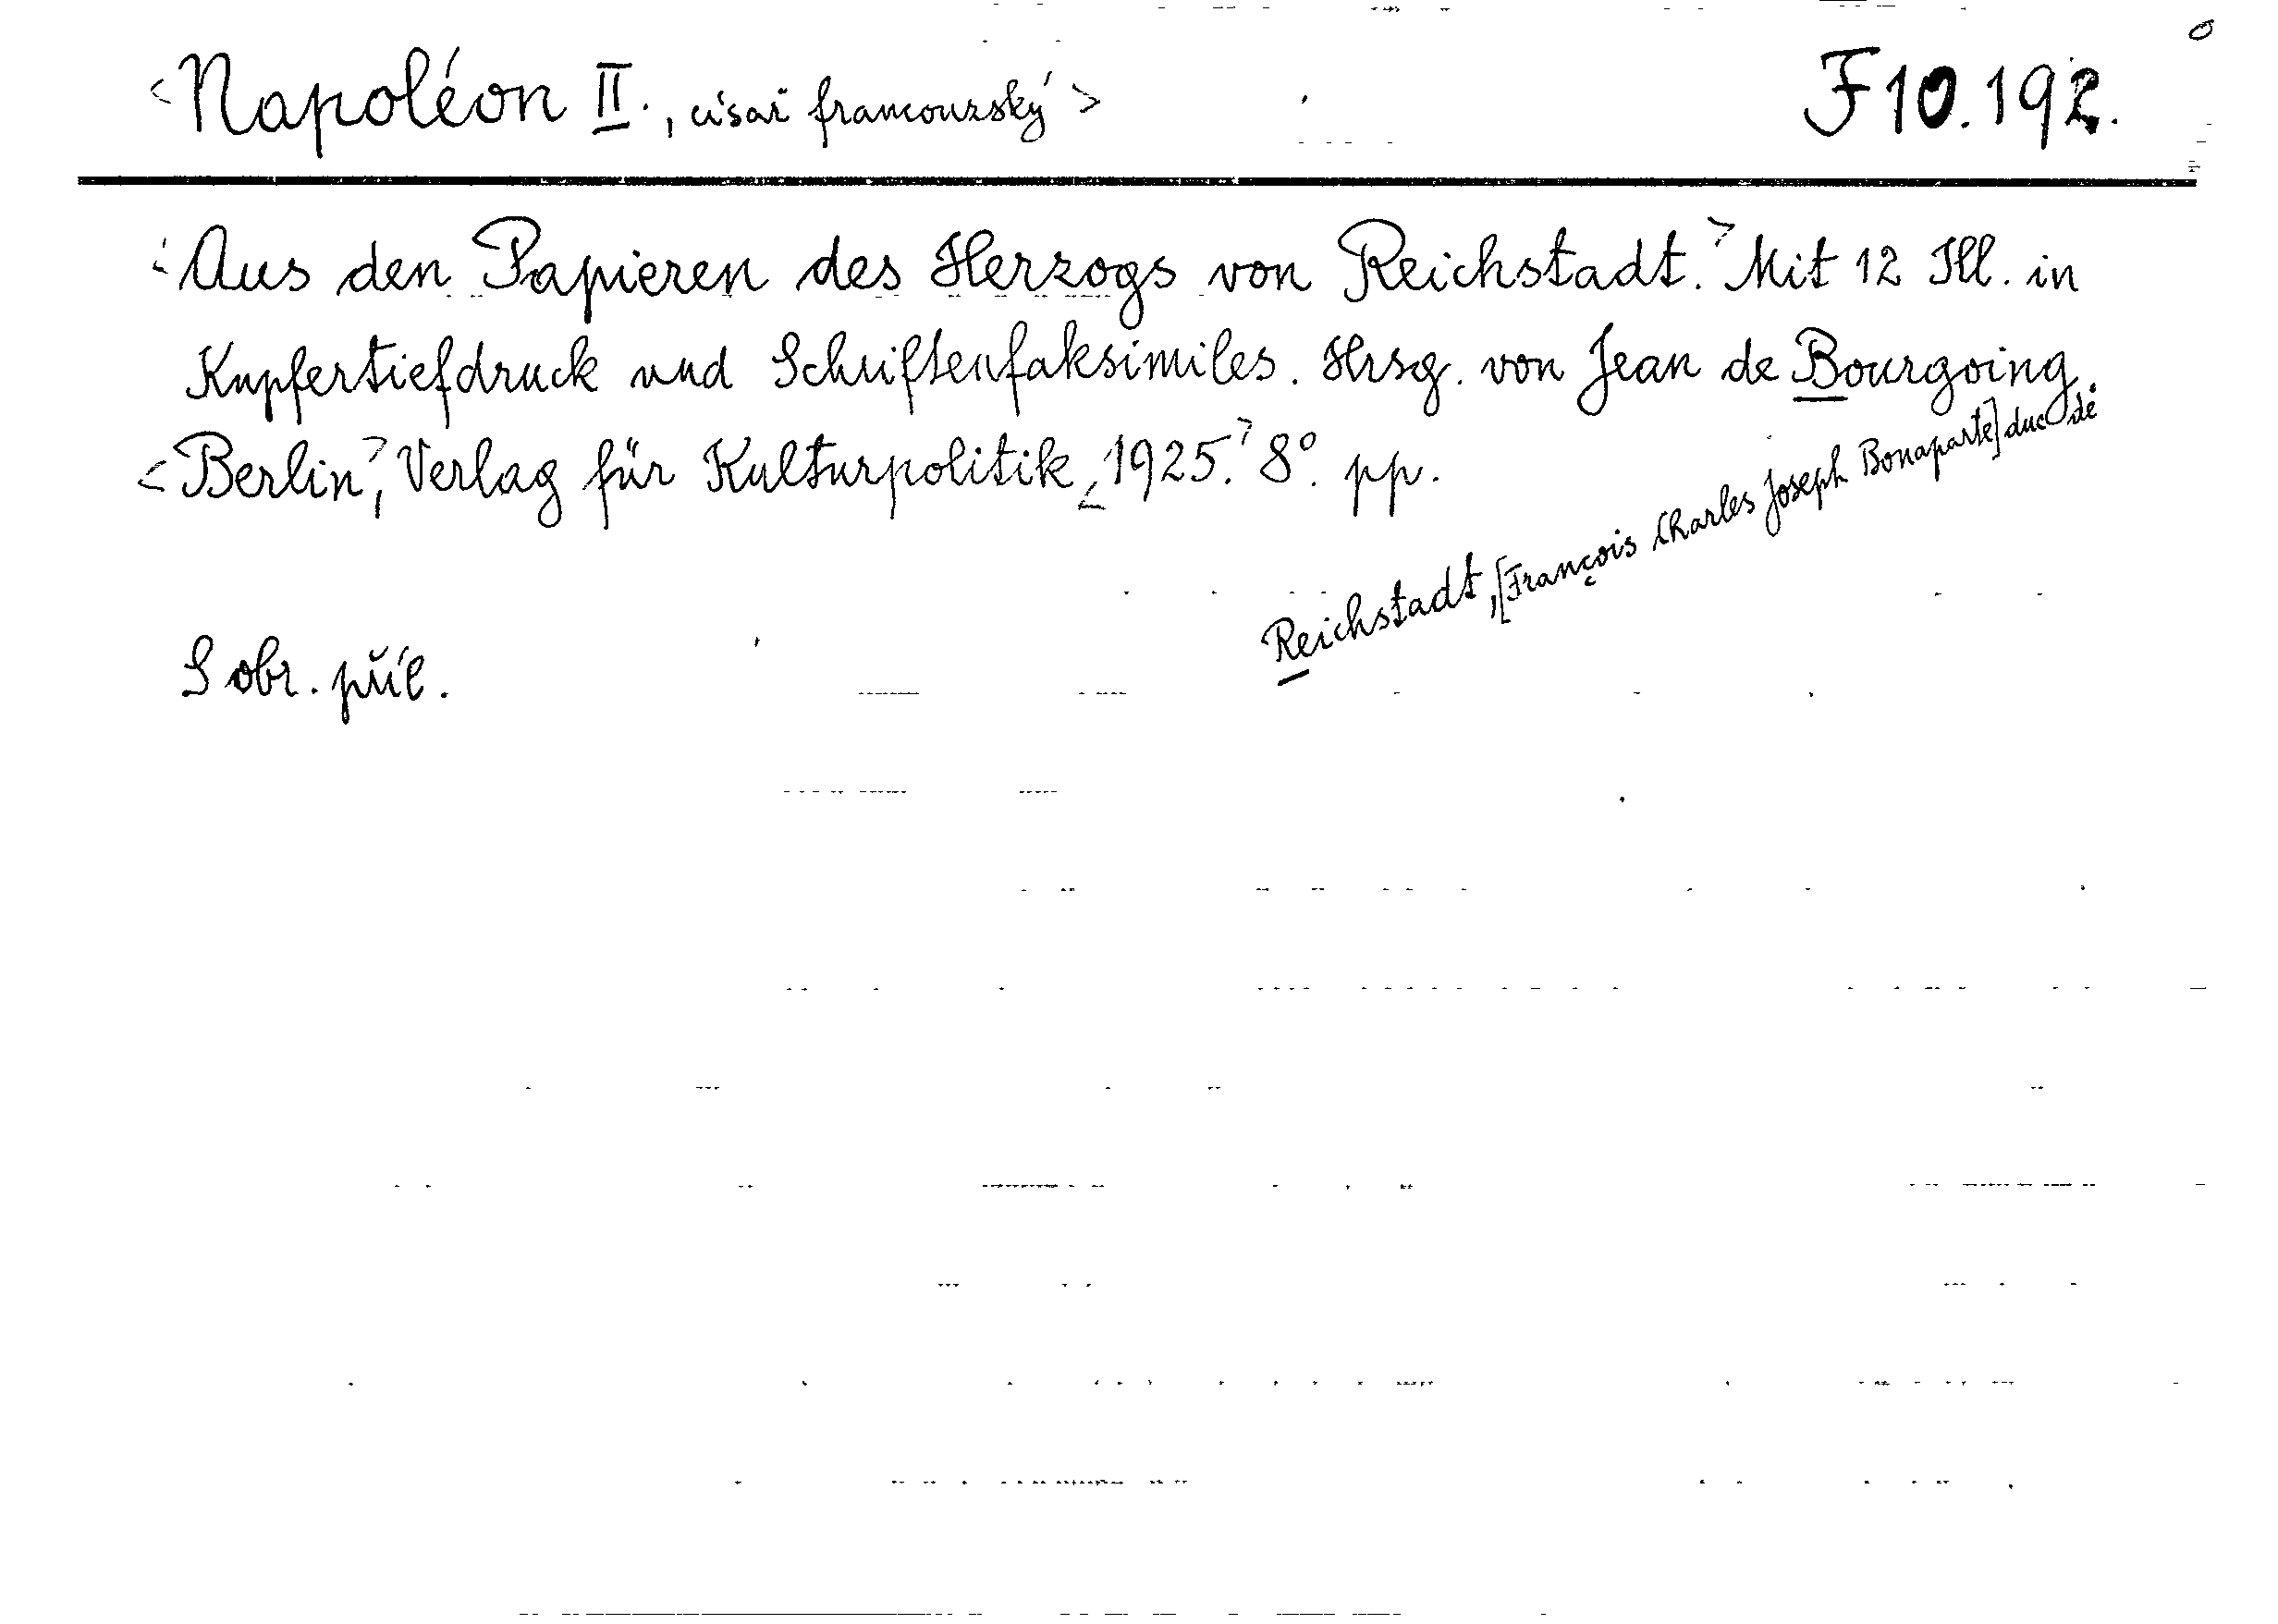 <Napoléon II., císař francouzský>
F 10.192.
<Aus den Papieren des Herzogs von Reichstadt.> Mit 12 Ill. in
Kupfertiefdruck und Schriftenfaksimiles. Hrsg. von Jean de Bourgoing.
<Berlin>, Verlag für Kulturpolitik <1925.> 8°. pp.
Reichstadt, [François Charles Joseph Bonaparte] duc de
S obr. příl.